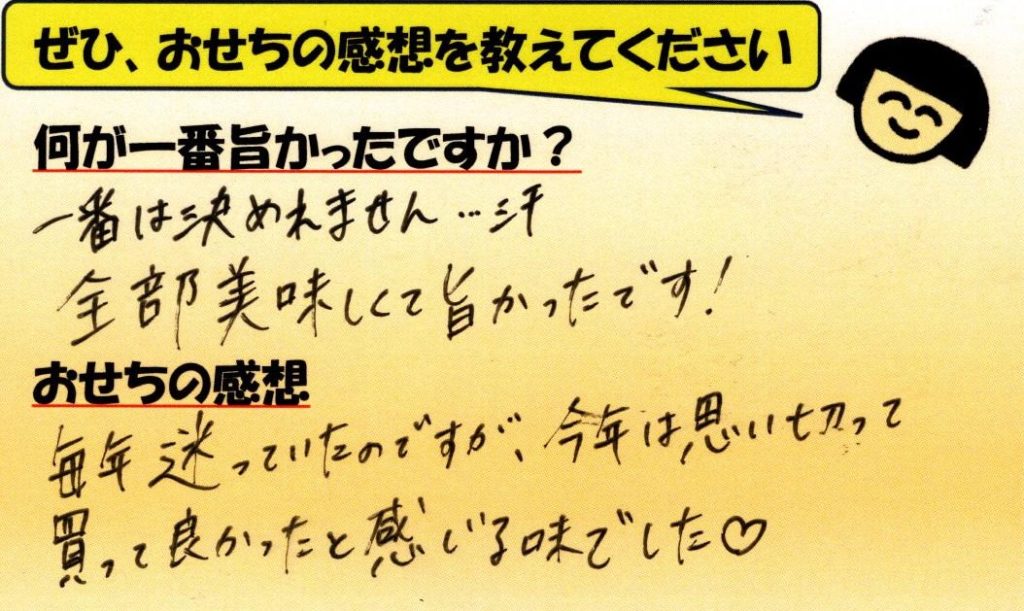 ぜひ、おせちの感想を教えてください
何が一番旨かったですか？
一番は決めれません…汗
全部美味しくて旨かったです！
おせちの感想
毎年迷っていたのですが、今年は思い切って
買って良かったと感じる味でした♡